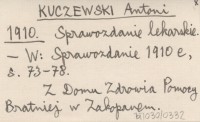 KUCZEWSKI Antoni
1910. Sprawozdanie lekarskie.
– W: Sprawozdanie 1910 r,
s. 73-78.
Z Domu Zdrowia Pomocy
Bratniej w Zakopanem.